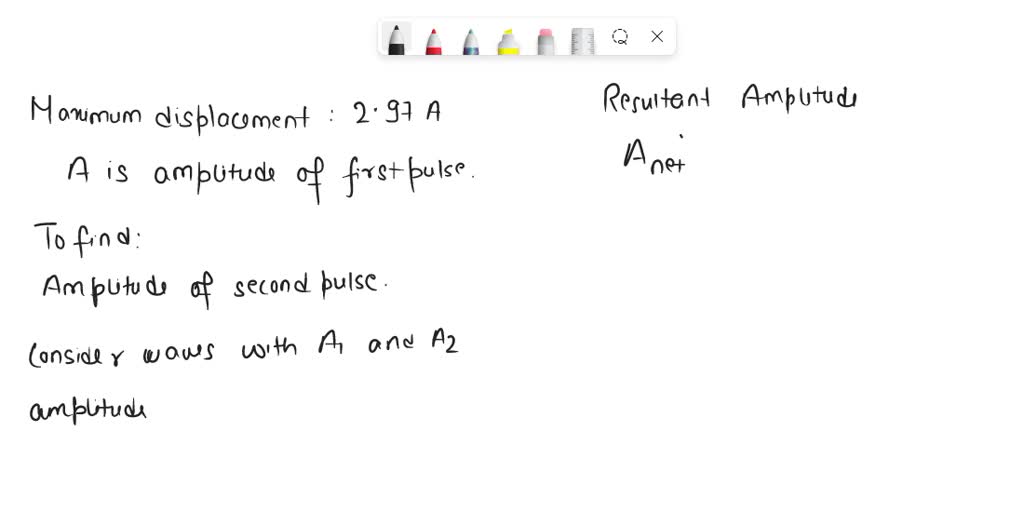 Maximum displacement : 2.97 A
A is amplitude of first pulse.
To find:
Amplitude of second pulse.
Consider waves with A1 and A2
amplitude
Resultant Amplitude
Anet